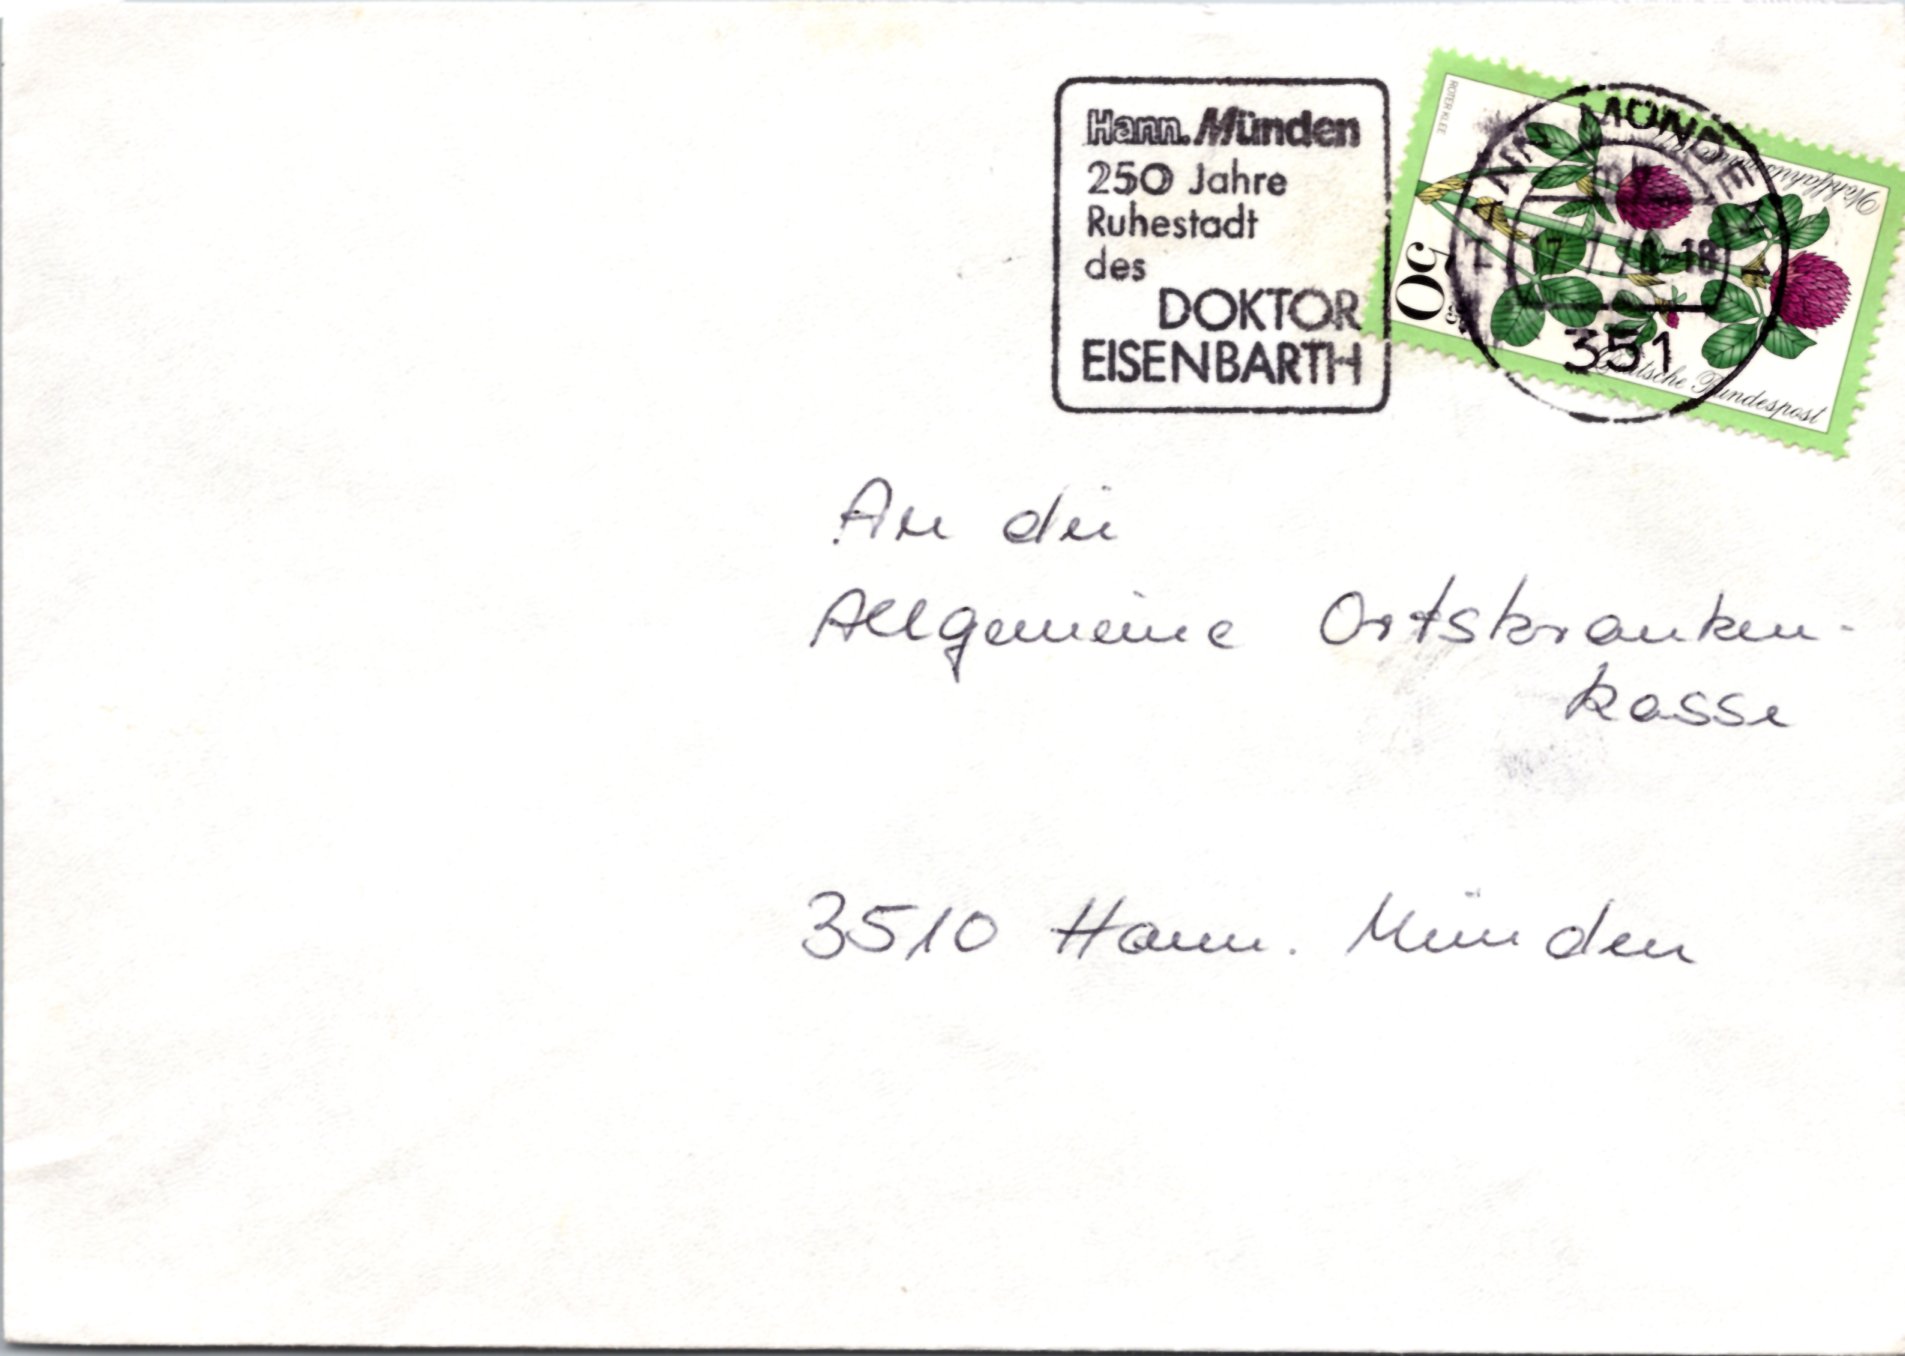 Hann. Münden
250 Jahre
Ruhestadt
des
DOKTOR
EISENBARTH
ROTER KLEE
50
HANN MÜNDEN 1
351
Deutsche Bundespost
An die
Allgemeine Ortskranken-
kasse
3510 Hann. Münden